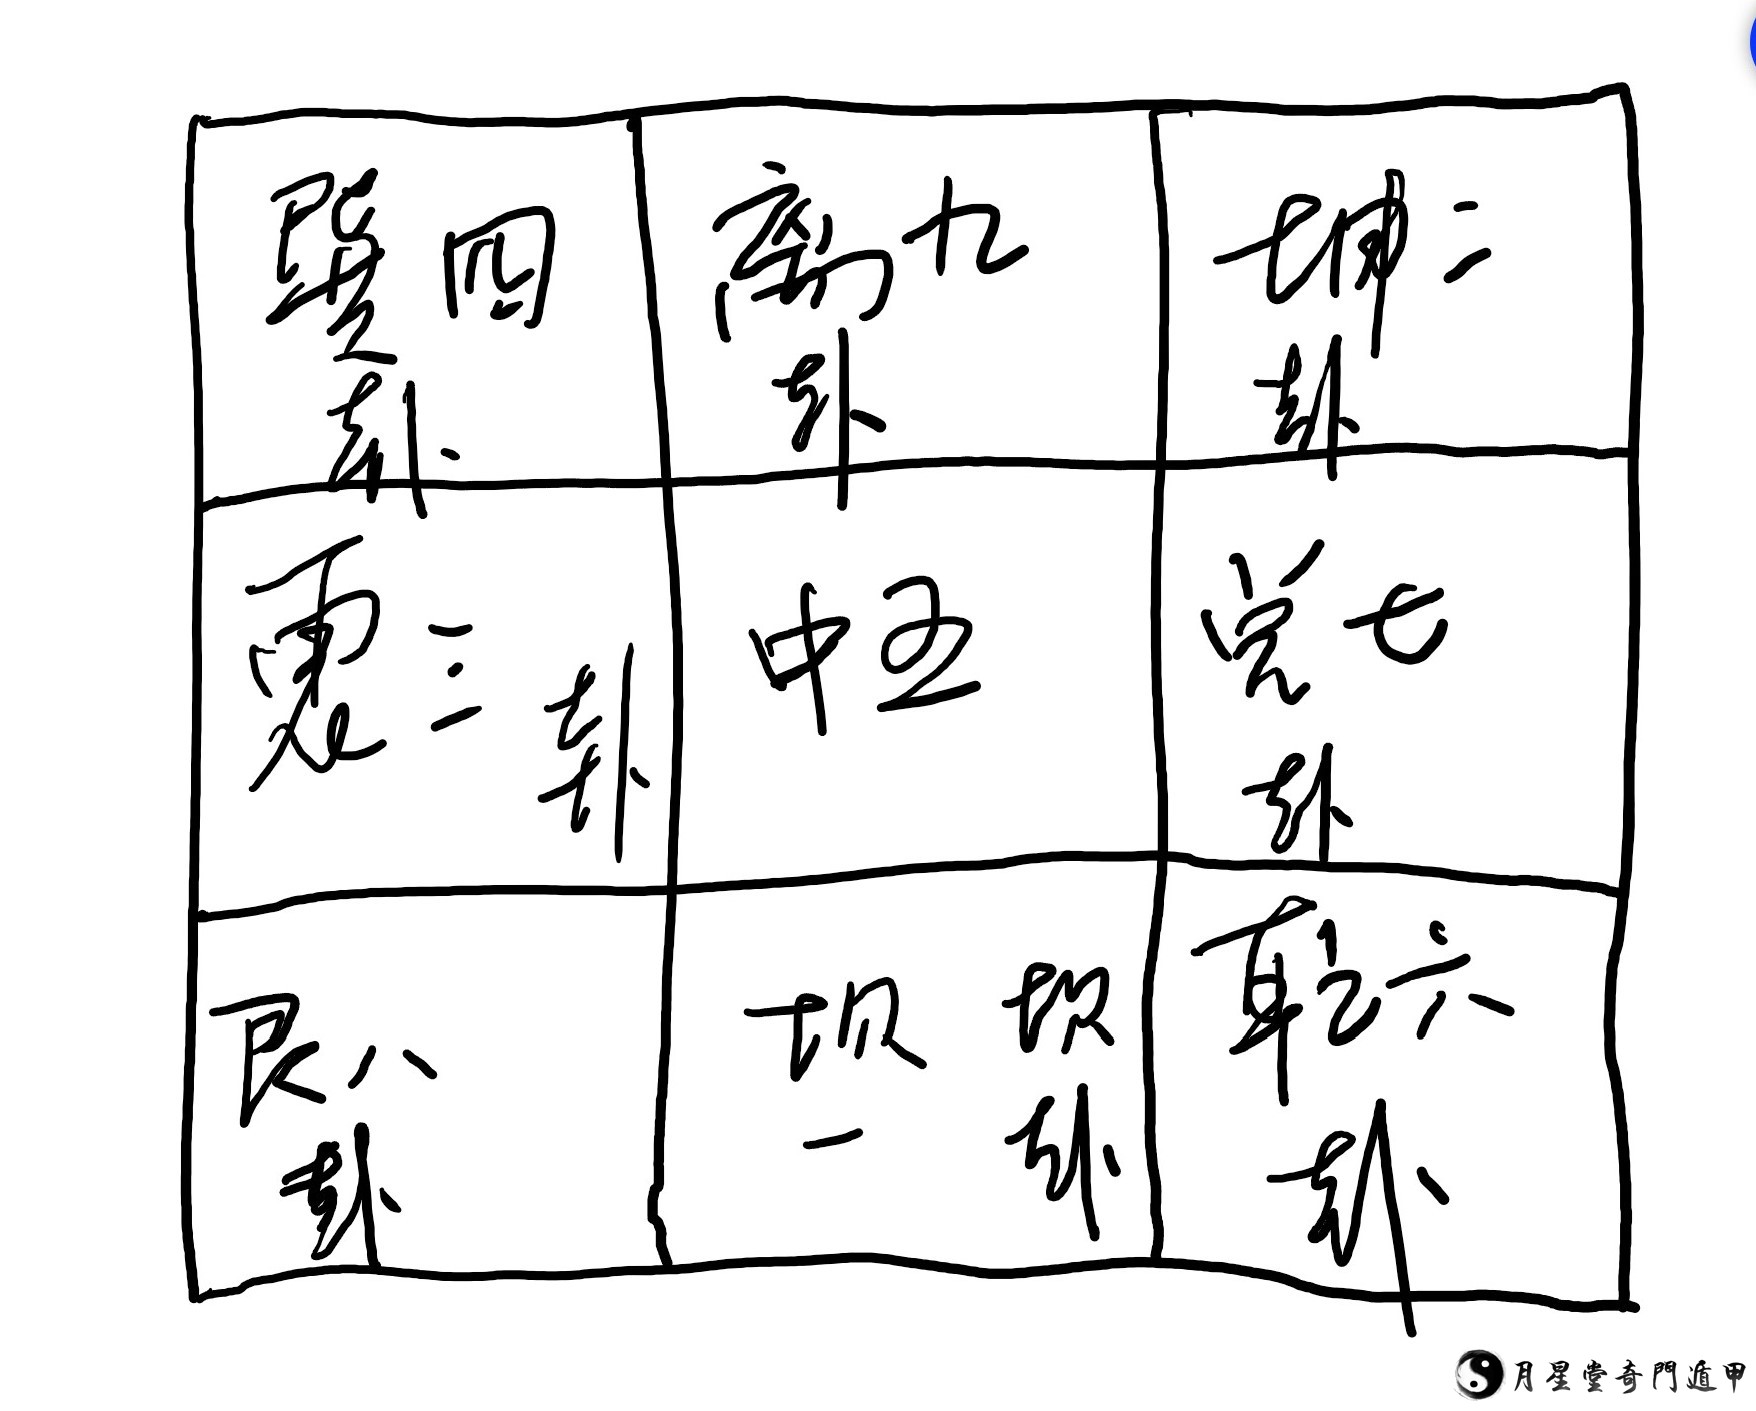 巽四
卦
离九
卦
坤二
卦
震三
卦
中五
兑七
卦
艮八
卦
坎
一
坎
卦
乾六
卦
月星堂奇門遁甲